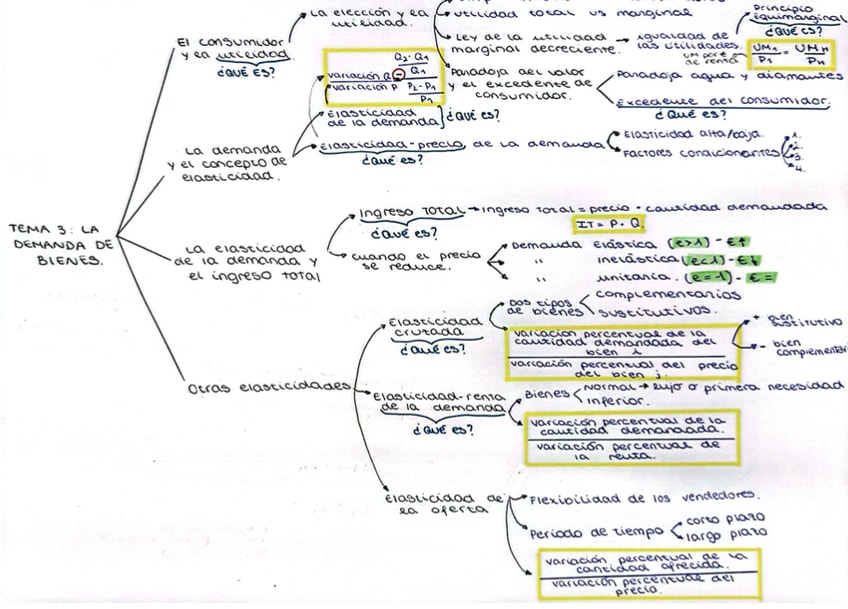 TEMA 3: LA
DEMANDA DE
BIENES.
El consumidor
y la utilidad
¿QUÉ ES?
La elección y la
utilidad.
utilidad total vs marginal
Ley de la utilidad
marginal decreciente.
igualdad de
las utilidades.
UM por €
de renta
Principio
Equimarginal
¿QUÉ ES?
UM1 / P1 = UMn / Pn
Paradoja del valor
y el excedente de
consumidor.
Paradoja agua y diamantes
Excedente del consumidor.
¿QUÉ ES?
La demanda
y el concepto de
elasticidad.
variación Q
variación P
Q2 - Q1
Q1
P2 - P1
P1
Elasticidad
de la demanda
¿QUÉ ES?
Elasticidad-precio de la demanda
¿QUÉ ES?
Elasticidad alta/baja.
Factores condicionantes
1.
2.
3.
4.
La elasticidad
de la demanda y
el ingreso total
Ingreso Total → ingreso total = precio · cantidad demandada
¿QUÉ ES?
IT = P · Q.
cuando el precio
se reduce.
Demanda Elástica (e>1) - €↑
" inelástica (e<1) - €↓
" unitaria. (e=-1) - € =
Otras elasticidades
Elasticidad
cruzada
¿QUÉ ES?
Dos tipos
de bienes
complementarios
sustitutivos.
variación percentual de la
cantidad demandada del
bien i
variación percentual del precio
del bien j.
+ bien
sustitutivo
- bien
complementari
Elasticidad-renta
de la demanda
¿QUÉ ES?
Bienes
Normal → lujo o primera necesidad
inferior.
variación percentual de la
cantidad demandada.
variación percentual de
la renta.
Elasticidad de
la oferta
Flexibilidad de los vendedores.
Periodo de tiempo
corto plazo
largo plazo
variación percentual de la
cantidad ofrecida.
variación percentual del
precio.